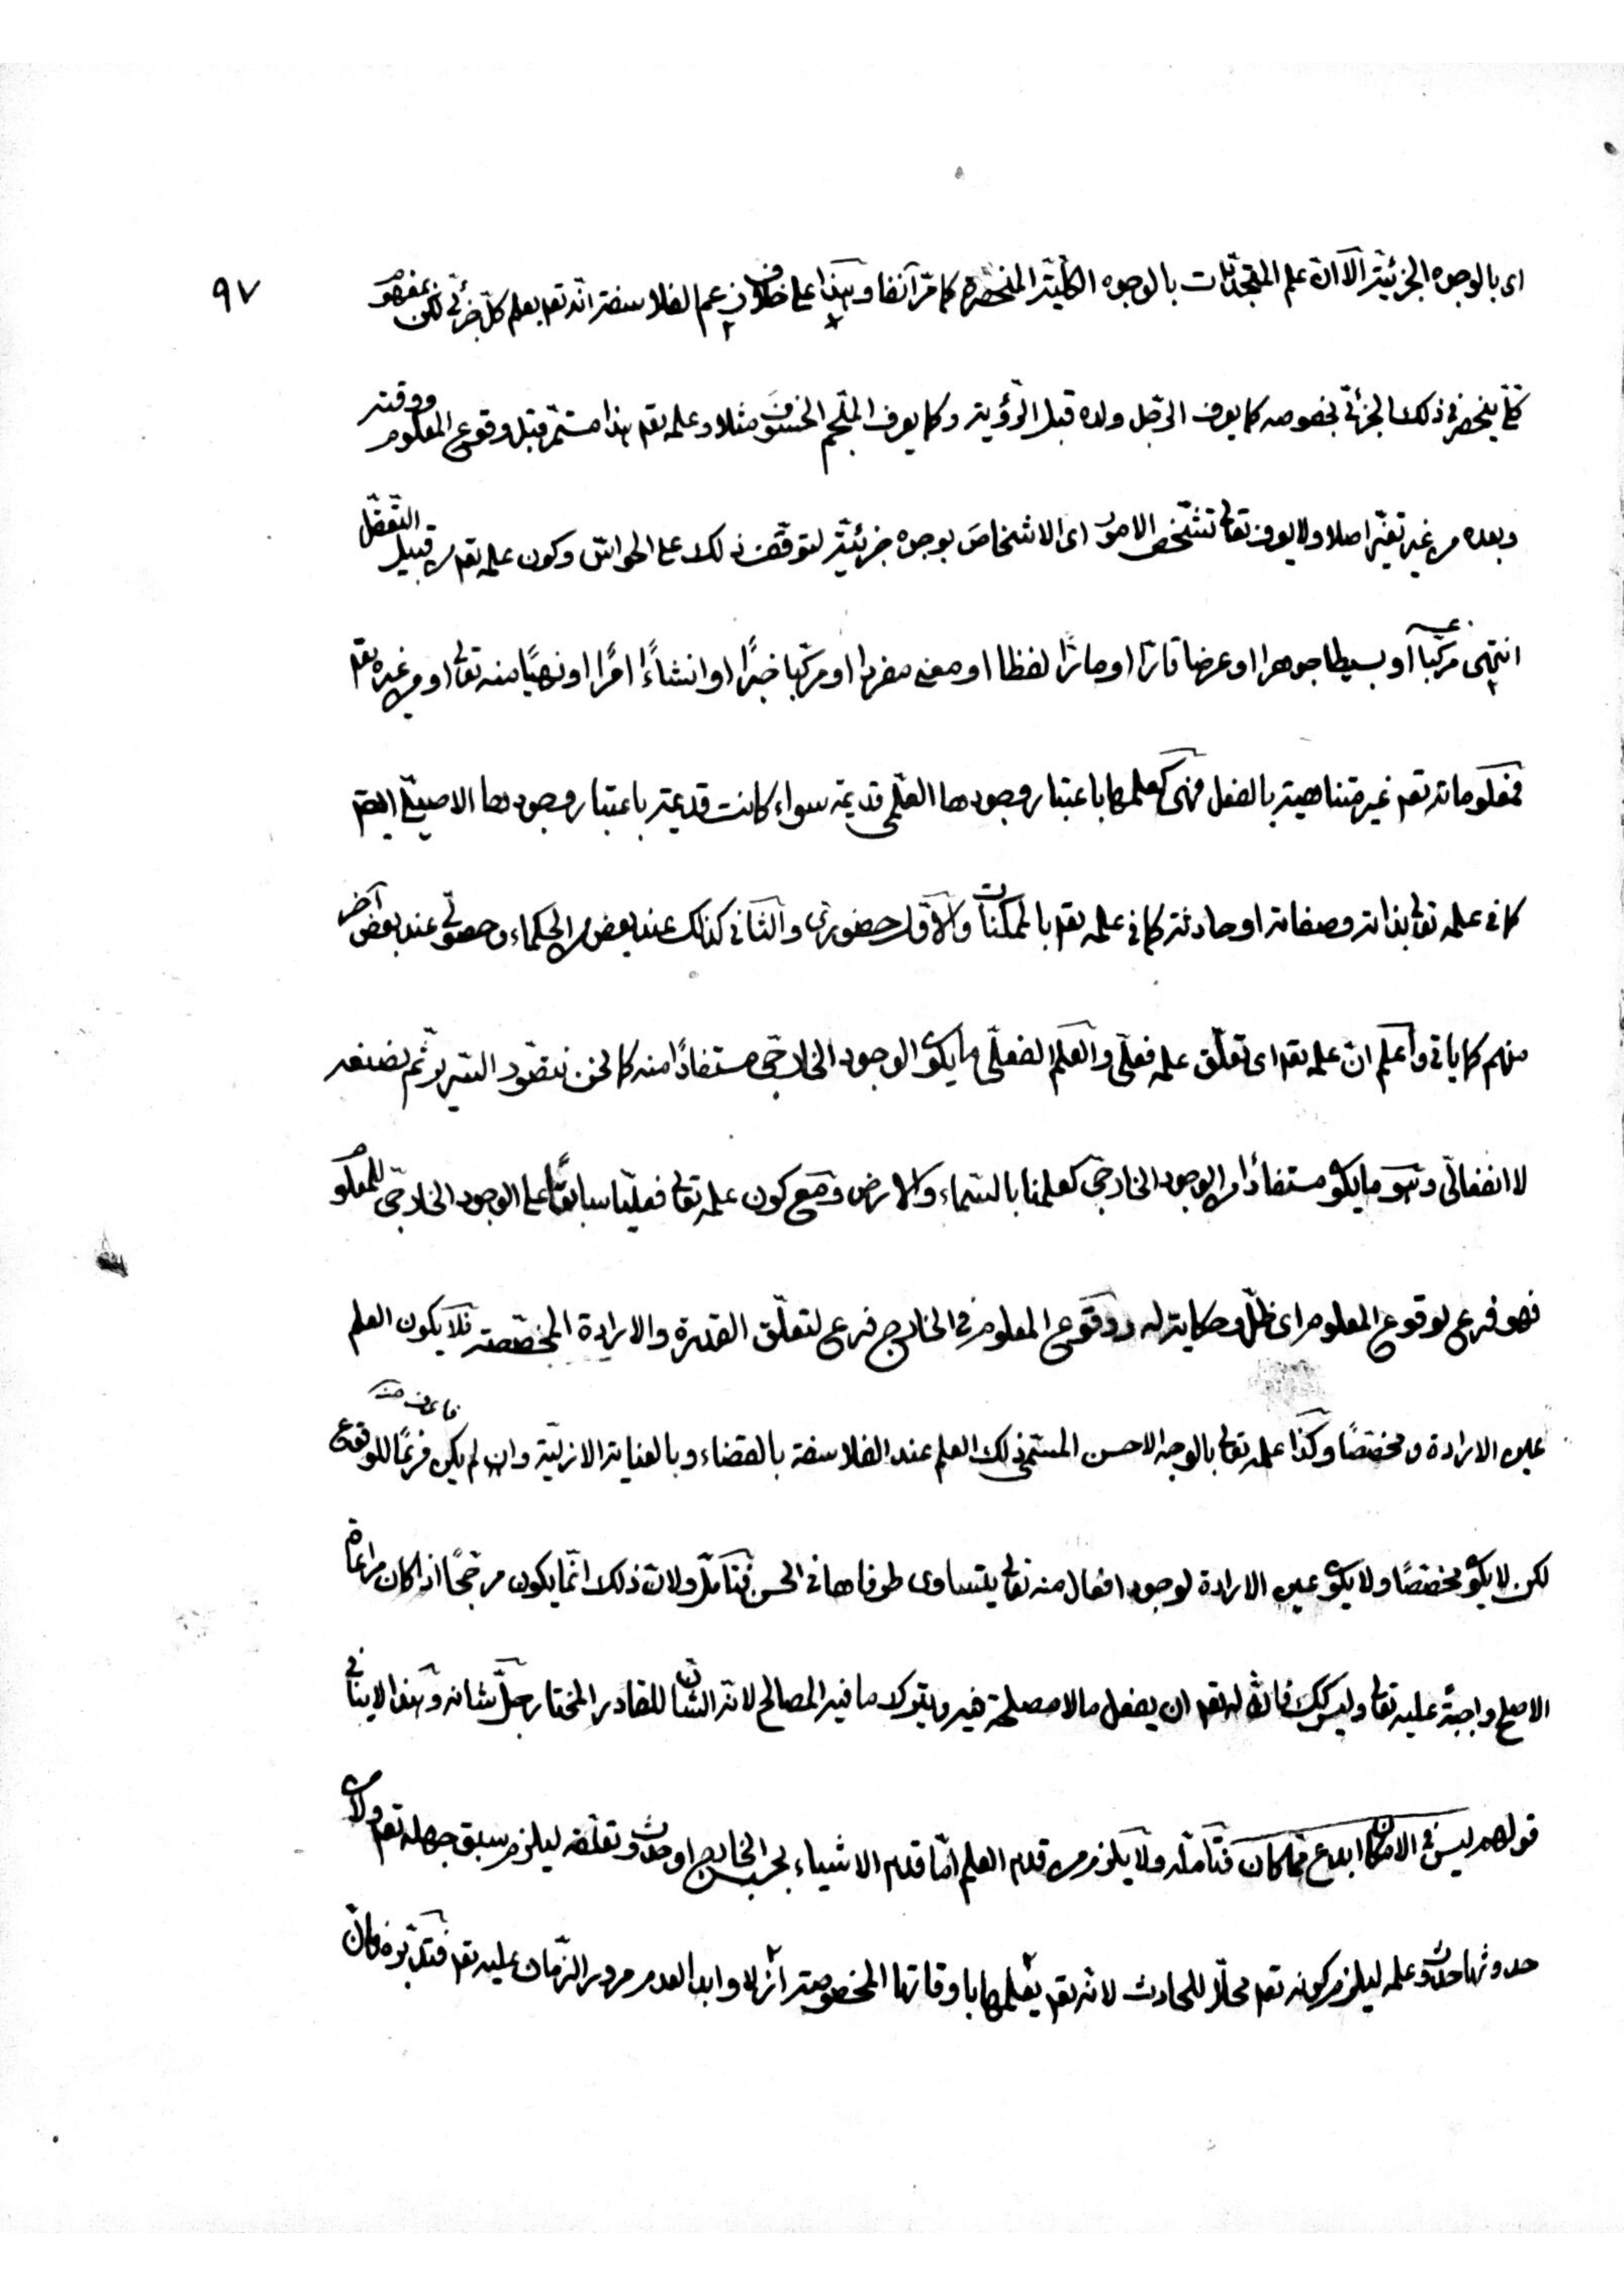 ٩٧
اى بالوجوه الجزئيّة الّا انّ علم المتجدّدات بالوجوه الكليّة المنحصرة كما مرّ آنفا وهذا على خلاف زعم الفلاسفة انّه تعم يعلم كلّ جزئى لكن بمفهوم
كلّى ينحصر فى ذلك الجزئى بخصوصه كما يعرف الرّجل ولده قبل الرّؤية وكما يعرف المنجّم الخسوف مثلا وعلمه تعم هذا مستمرّ قبل وقوع المعلوم ووقته
وبعده من غير تغيّر اصلا ولا يعرف تعالى تشخّص الامور اى الاشخاص بوجوه جزئيّة لتوقّف ذلك على الحواسّ وكون علمه تعم من قبيل التّعقّل
انتهى مركّبا او بسيطا جوهرا او عرضا قارّا او صارّا لفظا او معنى مفردا او مركّبا خبرًا او انشاءً امرًا او نهيًا منه تعالى او من غيره تعم
فمعلوماته تعم غير متناهية بالفعل فهى كعلمها باعتبار وجودها العلمى قديمة سواء كانت قديمة باعتبار وجودها الاصيلى ايضم
كما فى علمه تعالى بذاته وصفاته او حادثة كما فى علمه تعم بالممكنات والاوّل حضورى والثانى كذلك عند بعض من الحكماء وحصولى عند بعض آخر
منهم كما ياتى واعلم انّ علمه تعم اى تعلّق علمه فعلّى والعلم الفعلى ما يكون الوجود الخارجى مستفادًا منه كما نحن نتصوّر السّرير ثم نصنعه
لا انفعالى وهو ما يكون مستفادًا من الوجود الخارجى كعلمنا بالسّماء والارض ومع كون علمه تعالى فعليّا سابقًا على الوجود الخارجى للمعلوم
فهو فرع لوقوع المعلوم اى ظلّ وحكاية له ووقوع المعلوم فى الخارج فرع لتعلّق القدرة والارادة المخصّصة فلا يكون العلم
عين الارادة ومخصّصًا وكذا علمه تعالى بالوجه الاحسن المسمّى ذلك العلم عند الفلاسفة بالقضاء وبالعناية الازليّة وان لم يكن فرعًا للوقوع
فاعرف منه
لكن لا يكون مخصّصًا ولا يكون عين الارادة لوجود افعال منه تعالى يتساوى طرفاها فى الحسن فتامّل ولانّ ذلك انّما يكون مرجّحًا اذا كان مراعاة
الاصلح واجبة عليه تعالى وليس كك فانّ له تعم ان يفعل ما لا مصلحة فيه ويترك ما فيه المصالح لانّه الشان للقادر المختار جلّ شانه وهذا لا ينافى
قولهم ليس فى الامكان ابدع ممّا كان فتامّله ولا يلزم من قدم العلم امّا قدم الاشياء بحسب الخارج او حدوث وتعلّقه ليلزم سبق جهله تعم ولا من
حدوثها حدوث علمه ليلزم كونه تعم محلّا للحادث لانّه تعم يعلمها باوقاتها المخصوصة ازلا وابدا لعدم مرور الزّمان عليه تعم فتدبّره فانّ